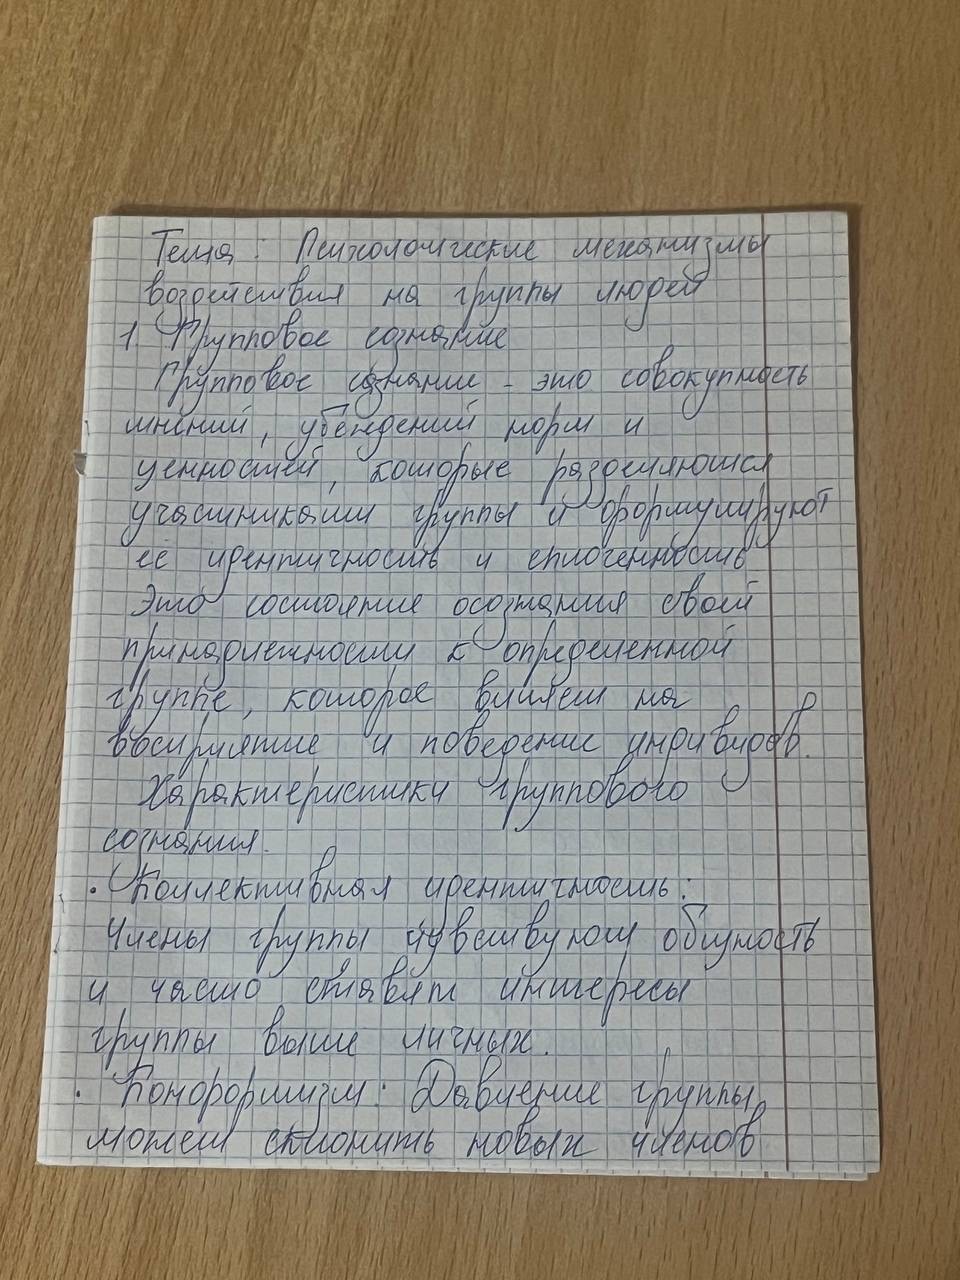 Тема: Психологические механизмы
воздействия на группы людей
1. Групповое сознание
Групповое сознание - это совокупность
мнений, убеждений норм и
ценностей, которые разделяются
участниками группы и формулируют
её идентичность и сплоченность
Это состояние осознания своей
принадлежности к определенной
группе, которое влияет на
восприятие и поведение индивидов.
Характеристики группового
сознания.
· Коллективная идентичность:
Члены группы чувствуют общность
и часто ставят интересы
группы выше личных.
· Конформизм: Давление группы
может склонить новых членов